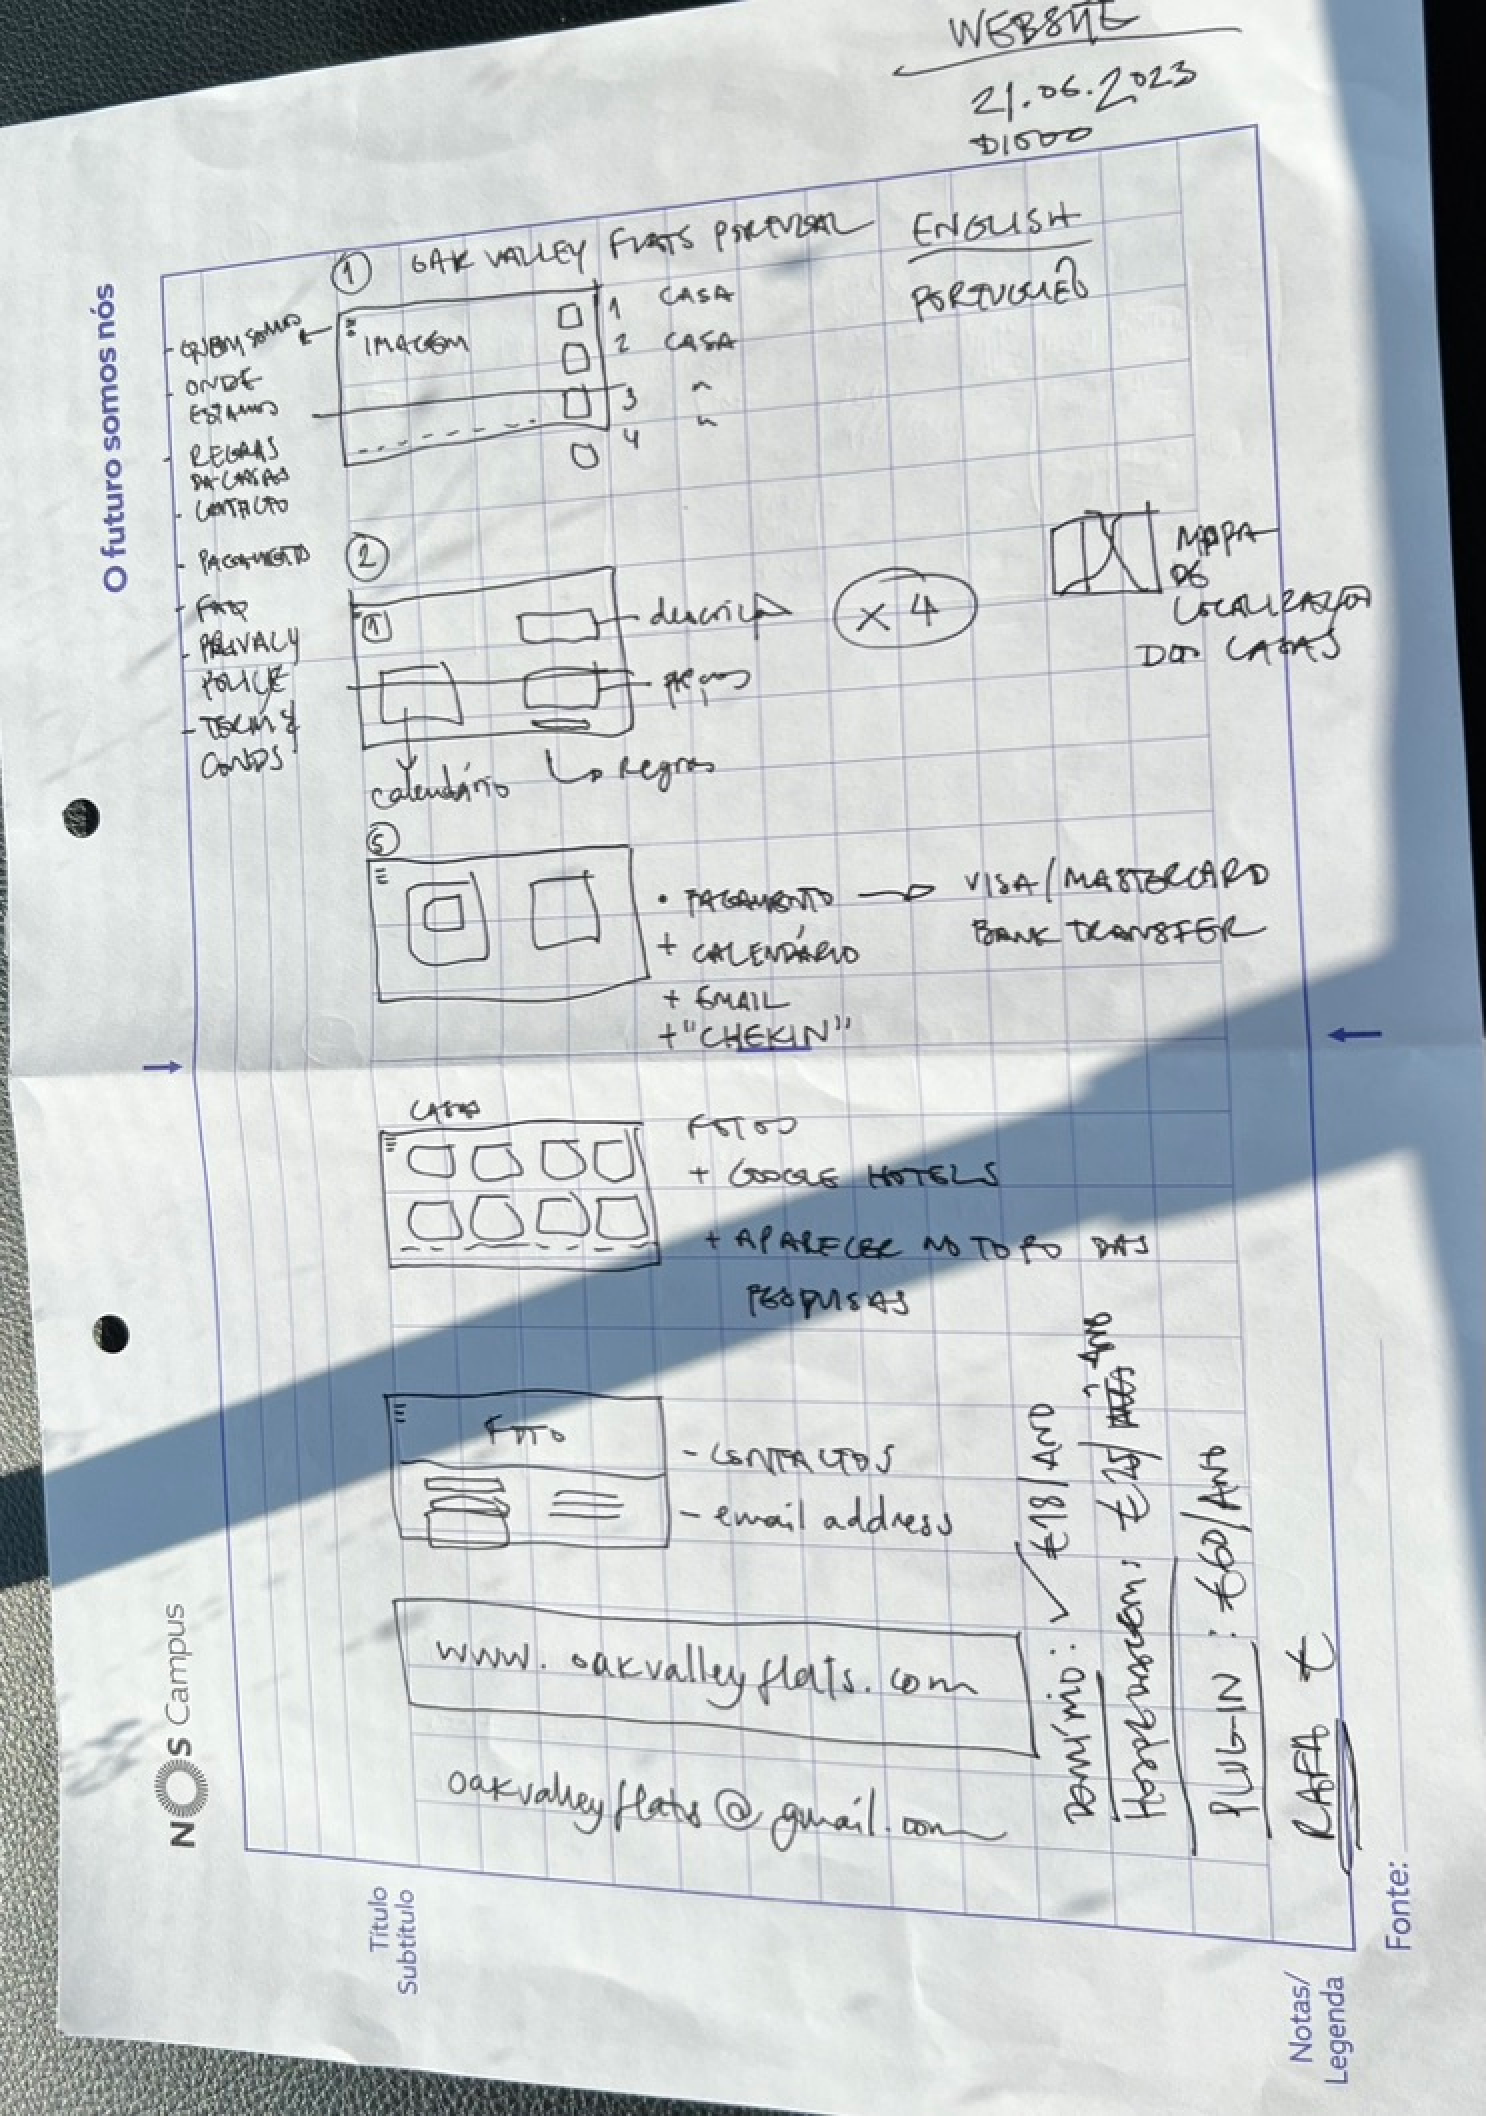 WEBSITE
21.06.2023
O futuro somos nós
① OAK VALLEY FLATS PORTUGAL
ENGLISH
PORTUGUÊS
IMAGEM
1 CASA
2 CASA
3 "
4 "
- QUEM SOMOS
- ONDE
ESTAMOS
- REGRAS
DA CASAS
- CONTACTO
- PAGAMENTO
- FAQ
- PRIVACY
POLICE
- TERM &
CONDS
②
1
descrição
preços
calendário
regras
x 4
MAPA
DE
LOCALIZAÇÃO
DAS CASAS
⑤
• PAGAMENTO → VISA/MASTERCARD
BANK TRANSFER
+ CALENDÁRIO
+ EMAIL
+ "CHEKIN"
CASAS
FOTOS
+ GOOGLE HOTELS
+ APARECER NO TOPO DAS
PESQUISAS
FOTO
- CONTACTOS
- email address
www.oakvalleyflats.com
oakvalleyflats@gmail.com
Domínio: ✓ €18/ANO
Hospedagem: €25/ANO
PLUG-IN: €60/ANO
RAFA €
NOS Campus
Título
Subtítulo
Notas/
Legenda
Fonte: